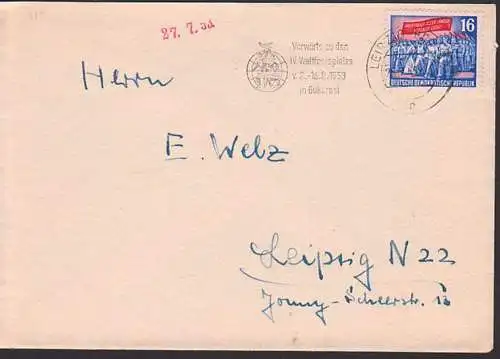 27. 7. 53
Vorwärts zu den
IV. Weltfestspielen
v. 2.-16.8.1953
in Bukarest
LEIPZIG
16
DEUTSCHE DEMOKRATISCHE REPUBLIK
Herrn
E. Welz
Leipzig N 22
Jonny-Scheerstr. 1b